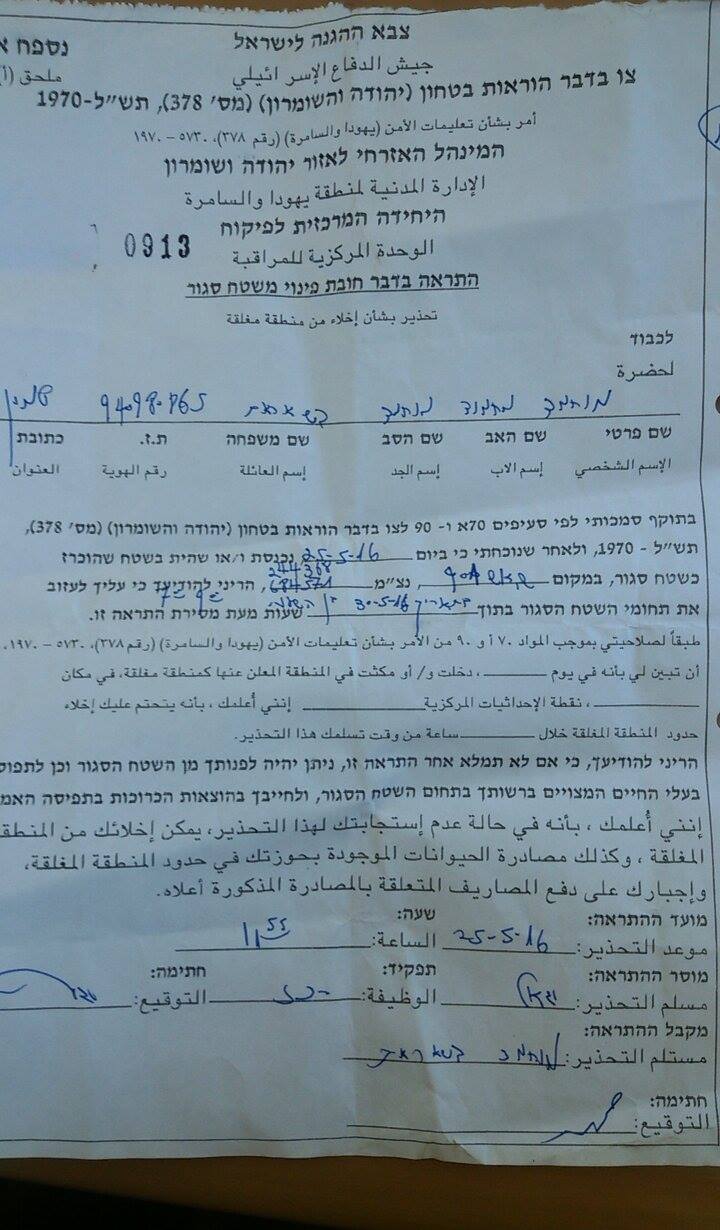 צבא ההגנה לישראל
נספח א
جيش الدفاع الإسرائيلي
ملحق (أ)
צו בדבר הוראות בטחון (יהודה והשומרון) (מס׳ 378), תש״ל-1970
أمر بشأن تعليمات الأمن (يهودا والسامرة) (رقم ٣٧٨)، ٥٧٣٠ – ١٩٧٠
המינהל האזרחי לאזור יהודה ושומרון
الإدارة المدنية لمنطقة يهودا والسامرة
היחידה המרכזית לפיקוח
0913
الوحدة المركزية للمراقبة
התראה בדבר חובת פינוי משטח סגור
تحذير بشأن إخلاء من منطقة مغلقة
לכבוד
لحضرة
מוחמד מחמוד מוחמד בשאראת
שם פרטי שם האב שם הסב שם משפחה ת.ז. כתובת
الإسم الشخصي إسم الاب إسم الجد إسم العائلة رقم الهوية العنوان
בתוקף סמכותי לפי סעיפים 70א ו- 90 לצו בדבר הוראות בטחון (יהודה והשומרון) (מס׳ 378),
תש״ל - 1970, ולאחר שנוכחתי כי ביום 25-5-16 נכנסת ו/או שהית בשטח שהוכרז
כשטח סגור, במקום נצ״מ 244368 684571, הריני להודיעך כי עליך לעזוב
את תחומי השטח הסגור בתוך בתאריך 30-5-16 שעות מעת מסירת התראה זו.
طبقاً لصلاحيتي بموجب المواد ٧٠ أ و ٩٠ من الأمر بشأن تعليمات الأمن (يهودا والسامرة) (رقم ٣٧٨)، ٥٧٣٠ – ١٩٧٠،
أن تبين لي بأنه في يوم ، دخلت و/ أو مكثت في المنطقة المعلن عنها كمنطقة مغلقة، في مكان
، نقطة الإحداثيات المركزية إنني أعلمك ، بأنه يتحتم عليك إخلاء
حدود المنطقة المغلقة خلال ساعة من وقت تسلمك هذا التحذير.
הריני להודיעך, כי אם לא תמלא אחר התראה זו, ניתן יהיה לפנותך מן השטח הסגור וכן לתפוס
בעלי החיים המצויים ברשותך בתחום השטח הסגור, ולחייבך בהוצאות הכרוכות בתפיסה האמ
إنني أعلمك ، بأنه في حالة عدم إستجابتك لهذا التحذير، يمكن إخلائك من المنطقة
المغلقة ، وكذلك مصادرة الحيوانات الموجودة بحوزتك في حدود المنطقة المغلقة،
وإجبارك على دفع المصاريف المتعلقة بالمصادرة المذكورة أعلاه.
מועד ההתראה: שעה:
موعد التحذير: 25-5-16 الساعة: 11 55
מוסר ההתראה: תפקיד: חתימה:
مسلم التحذير: الوظيفة: التوقيع:
מקבל ההתראה:
مستلم التحذير: מוחמד בשאראת
חתימה:
التوقيع: